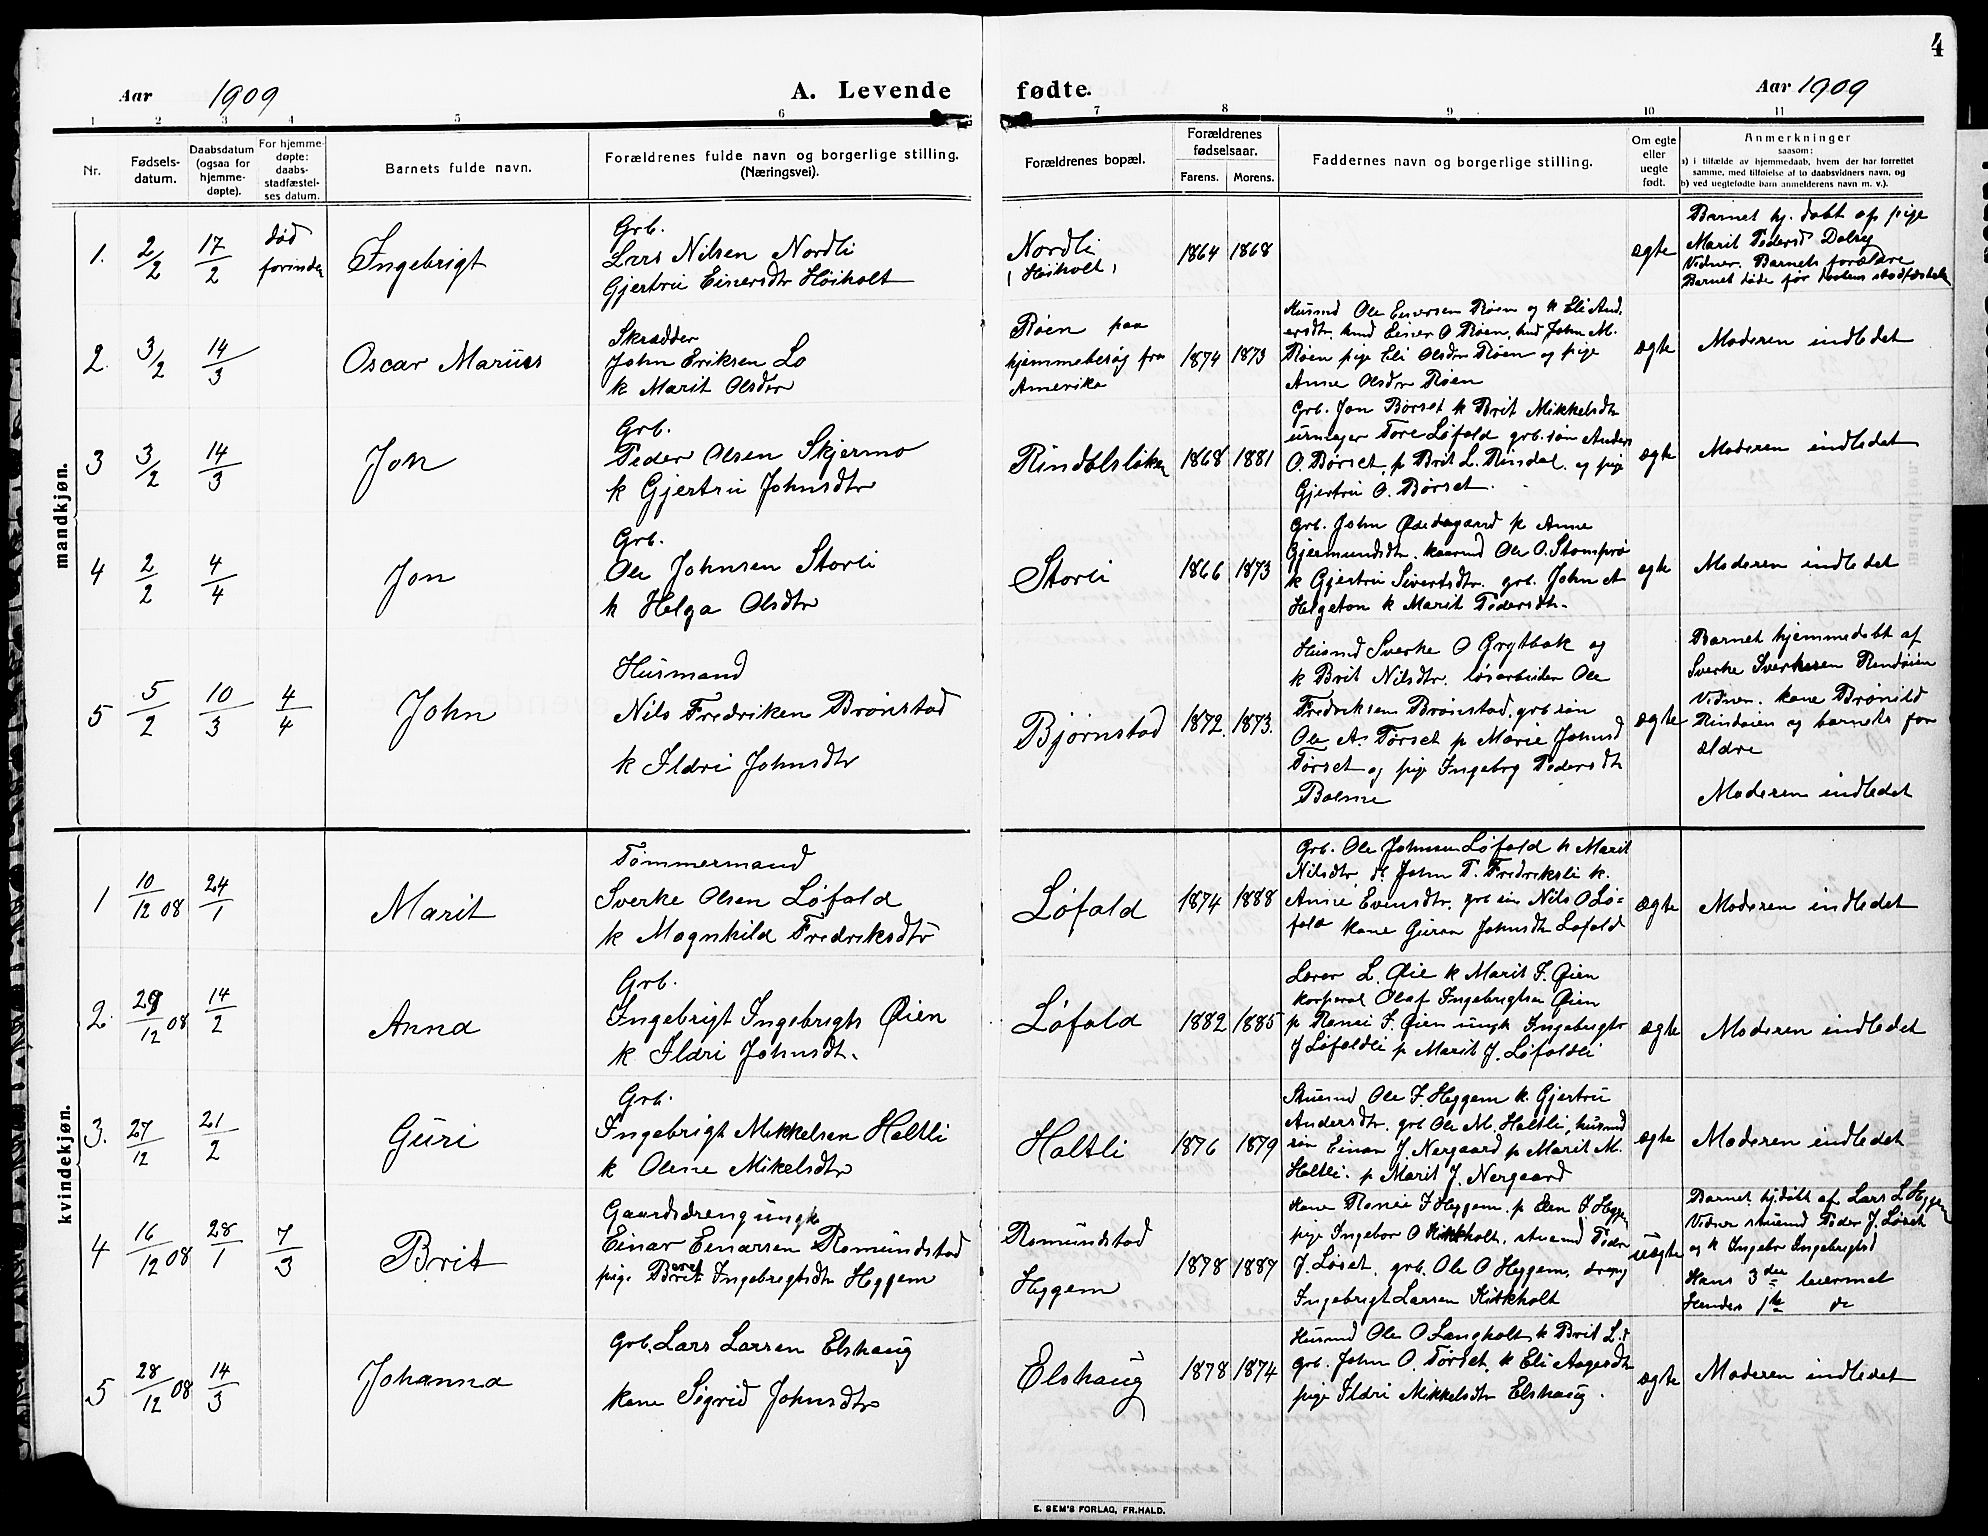 4
Aar 1909
A. Levende fødte.
Aar 1909
1 2 3 4 5 6 7 8 9 10 11
Nr.
Fødsels-
datum.
Daabsdatum
(ogsaa for
hjemme-
døpte).
For hjemme-
døpte:
daabs-
stadfæstel-
ses datum.
Barnets fulde navn.
Forældrenes fulde navn og borgerlige stilling.
(Næringsvei).
Forældrenes bopæl.
Forældrenes
fødselsaar.
Farens. Morens.
Faddernes navn og borgerlige stilling.
Om egte
eller
uegte
født.
Anmerkninger
saasom:
a) i tilfælde av hjemmedaab, hvem der har forrettet
samme, med tilføielse af to daabsvidners navn, og
b) ved uegtefødte barn anmelderens navn m. v.).
mandkjøn.
1. 2/2 17/2
død
forinden
Ingebrigt
Grb.
Lars Nilsen Nordli
Gjertru Einersdtr Høiholt
Nordli
(Høiholt)
1864 1868
ægte
Barnet hj. døbt af pige
Marit Pedersd Dalseg
Vidner. Barnets forældre
Barnet døde før daabens stadfæstelse
2. 3/2 14/3
Oscar Marius
Skrædder
John Eriksen Lo
k Marit Olsdtr
Røen paa
hjemmebesøg fra
Amerika
1874 1873
Husmd Ole Enersen Røen og k Eli And.
ersdtr, hmd Einer O Røen, hmd John M.
Røen pige Eli Olsdtr Røen og pige
Anne Olsdtr Røen
ægte
Moderen indledet
3 3/2 14/3
Jon
Grb.
Peder Olsen Skjermo
k Gjertru Johnsdtr
Rindalsløkken
1868 1881
Grb. Jon Børset k Brit Mikkelsdtr
urmager Tore Løfald grb. søn Anders
O. Børset, p Brit L. Rindal, og pige
Gjertru O. Børset.
ægte
Moderen indledet
4 2/2 4/4
Jon
Grb.
Ole Johnsen Storli
k Helga Olsdtr
Storli
1866 1873
Grb. John Ødegaard k Anne
Gjermundsdtr. kaarmd Ole O. Stomprø
k Gjertru Sivertsdtr. grb. John A
Helgeton k Marit Pedersdtr.
egte
Moderen indledet
5 5/2 10/3 4/4
John
Husmand
Nils Fredriksen Brønstad
k Ildri Johnsdtr
Bjørnstad
1872. 1873.
Husmd Sverke O Grytbak og
k Brit Nilsdtr. løsarbeider Ole
Fredriksen Brønstad, grb søn
Ole A. Tørset p Marie Johnsd
Tørset og pige Ingebrg Pedersdtr
Bolme
ægte
Barnet hjemmedøbt af
Sverke Sverkesen Rendøien
Vidner. kone Brønild
Rindøien og barnets for
ældre
Moderen indledet
kvindekjøn.
1 10/12 08 24/1
Marit
Tømmermand
Sverke Olsen Løfald
k Magnhild Fredriksdtr
Løfald
1874 1888
Grb. Ole Johnsen Løfald k Marit
Nilsdtr. do John P. Fredriksli k.
Anne Evensdtr, grb søn Nils O Lø-
fald kone Guren Johnsdtr Løfald
ægte
Moderen indledet
2. 29/12 08 14/2
Anna
Grb.
Ingebrigt Ingebrigts Øien
k Ildri Johnsdtr.
Løfald
1882 1885
Lærer L. Øie k Marit I. Øien
korporal Olaf Ingebrigtsen Øien
p Ranei I. Øien ungk Ingebrigt
J Løfaldli p Marit J. Løfaldli
ægte
Moderen indledet
3. 27/12 21/2
Guri
Grb.
Ingebrigt Mikkelsen Holtli
k Olene Mikelsdtr
Holtli
1876 1879
Stuemd Ole I. Heggem k. Gjertru
Andersdtr. grb Ole M. Holtli, husmd
søn Einar J. Nergaard p Marit M.
Holtli. p Marit J. Nergaard
ægte
Moderen indledet
4 16/12 08 28/1 7/3
Brit
Gaardsdreng ungk
Einar Einarsen Romundstad
pige Berit Ingebrigtsdtr Heggem
Romundstad
Heggem
1878 1887
Kone Ranei I Heggem, p Elen I Heggem
pige Ingebor O Kirkholt, stuemd Peder
J. Løset, grb. Ole O Heggem, dreng
Ingebrigt Larsen Kirkholt
uægte
Barnet hj.døbt af Lars L Heggem
Vidner stuemd Peder J. Løset
og k Ingebor Ingebrigtsd
Hans 3die leiermaal
Hendes 1te do
5 28/12 08 14/3
Johanna
Grb. Lars Larsen Elshaug
kone Sigrid Johnsdtr
Elshaug
1878 1874
Husmd Ole O Langholt, k Brit L.d
grb. John O. Tørset, k Eli Aagesdtr
pige Ildri Mikkelsdtr Elshaug.
ægte
Moderen indledet
E. SEM'S FORLAG, FR.HALD.